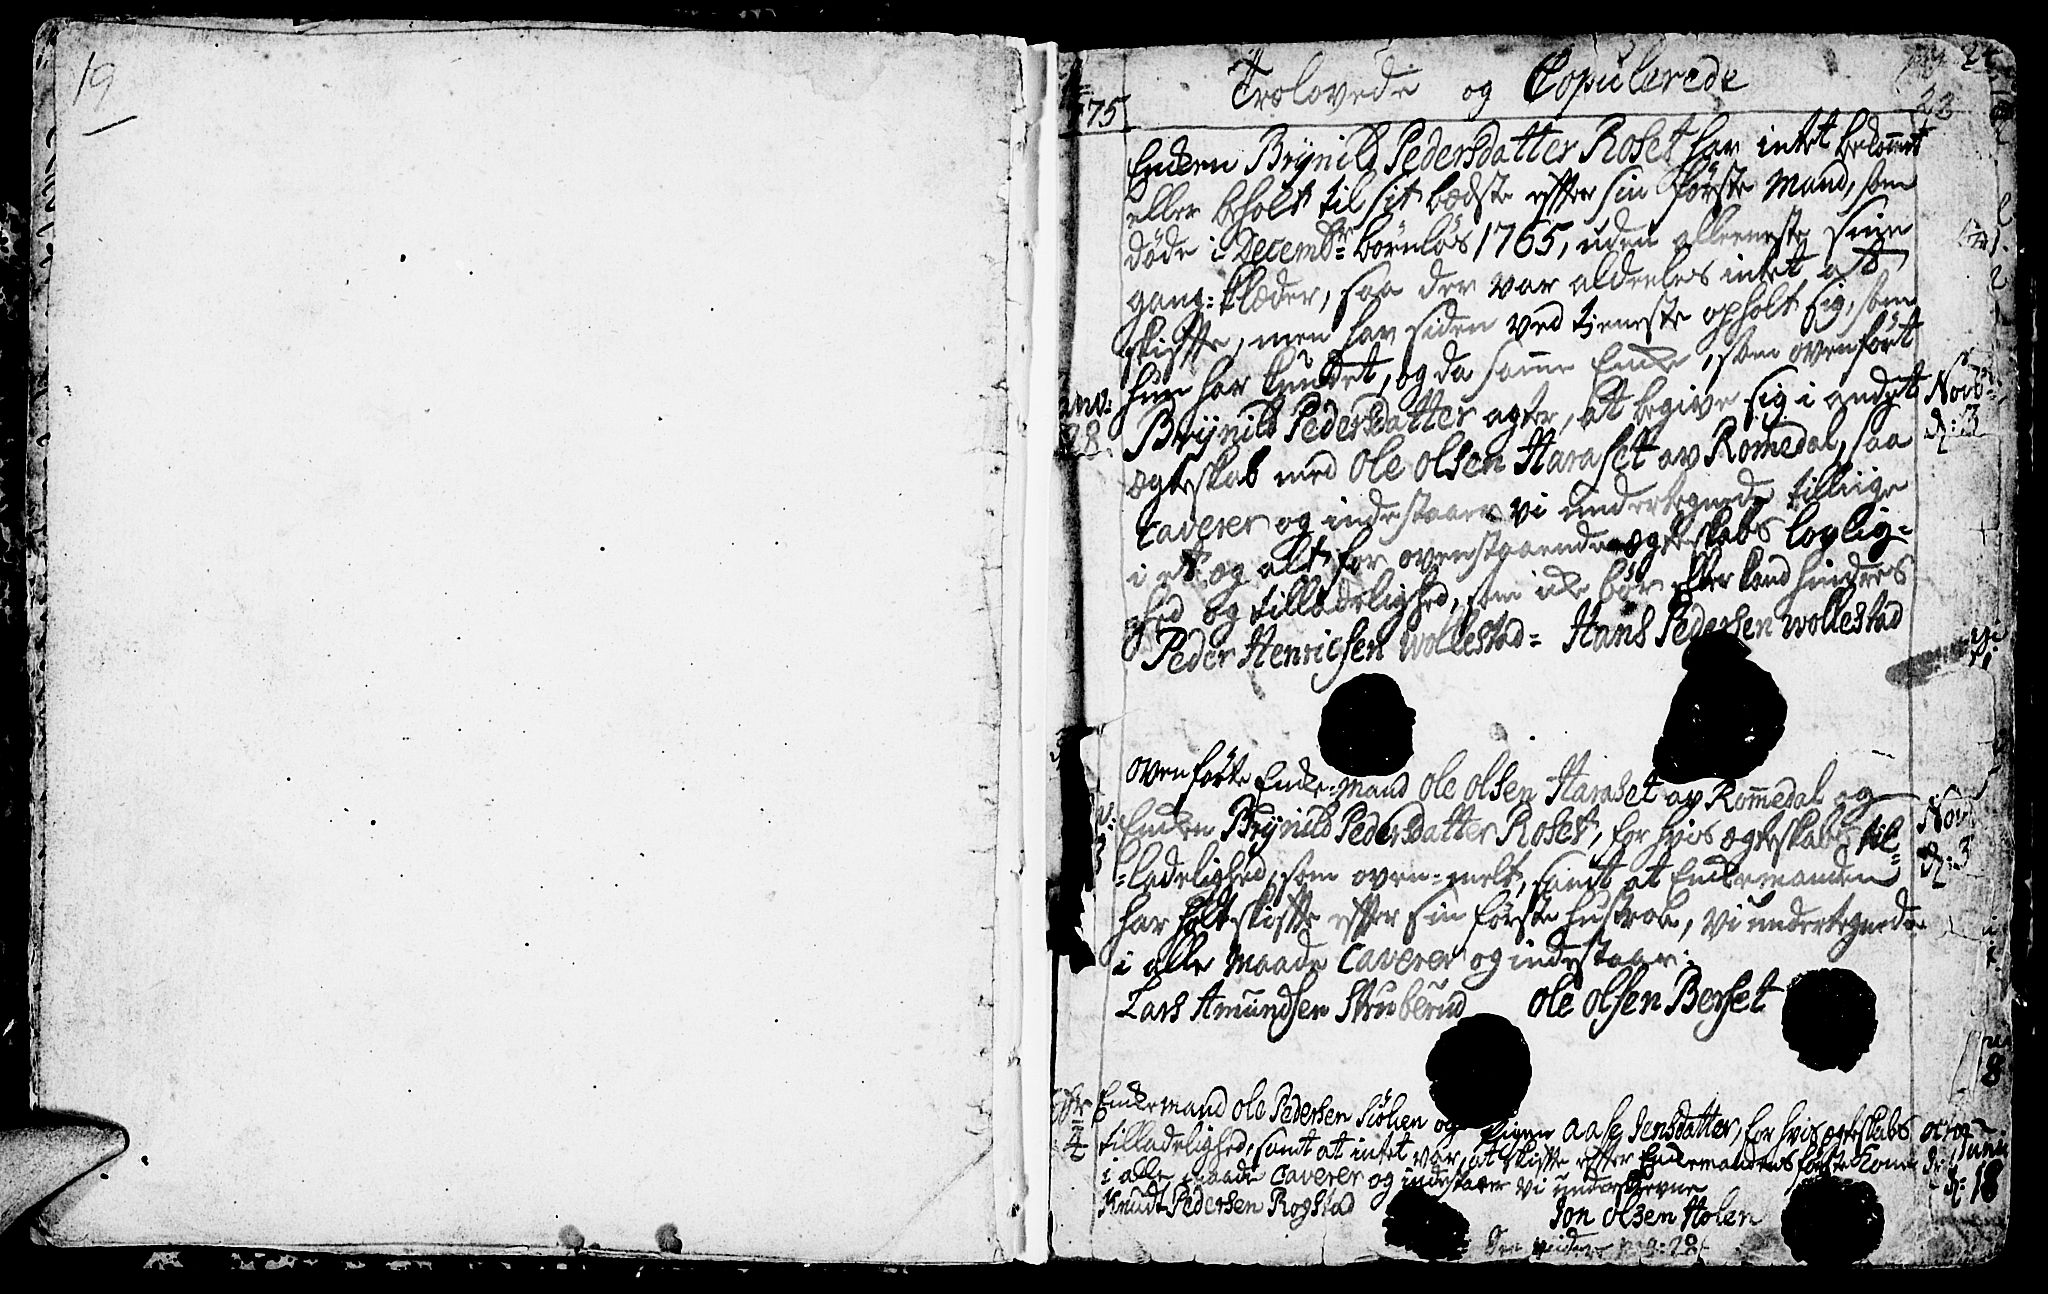 19
Trolovede og Copulerede
23
75
Enken Brÿnild Pedersdatter Roset har intet bekommet
eller beholt til sit bædste efter sin første Mand, som
døde i Decembr børnløs 1765, uden alleeneste sine
gang-klæder, saa der var aldeeles intet at
skiffte, men har siden ved tjeneste opholt sig, som
hun har kundet, og da samme Enke, som ovenført
Brÿnild Pedersdatter agter, at begive sig i andet
Novbr
d: 3
28
ægteskab med Ole Olsen Haraset av Romedal, saa
caverer og indestaaer vi undertegnede tillige
i et og alt for ovenstaaende ægteskabs lovlig-
hed og tilladelighed, som icke bør eller kand hindres
Peder Henricsen Wollestad- Hans Pedersen Wollestad
ovenførte Enke-Mand Ole Olsen Haraset av Rommedal og
Enken Brÿnild Pedersdatter Roset, for hvis ægteskabs til-
Nov
d: 3
-ladelighed, som oven-melt, samt at Enkemanden
har holt skiffte effter sin første hustroe, vi undertegnede
i alle Maade caverer og indestaar.
Lars Amundsen Struberud Ole Olsen Berset
Enkemand Ole Pedersen Siølien og Pigen Aase Jensdatter, for hvis ægteskabs
octob
tilladelighed, samt at intet var, at skiffte effter Enkemandens første Kone
i alle maade caverer og indestaaer vi underskrevne
18
Knudt Pedersen Rogstad Jon Olsen Holen
See videre pag: 28